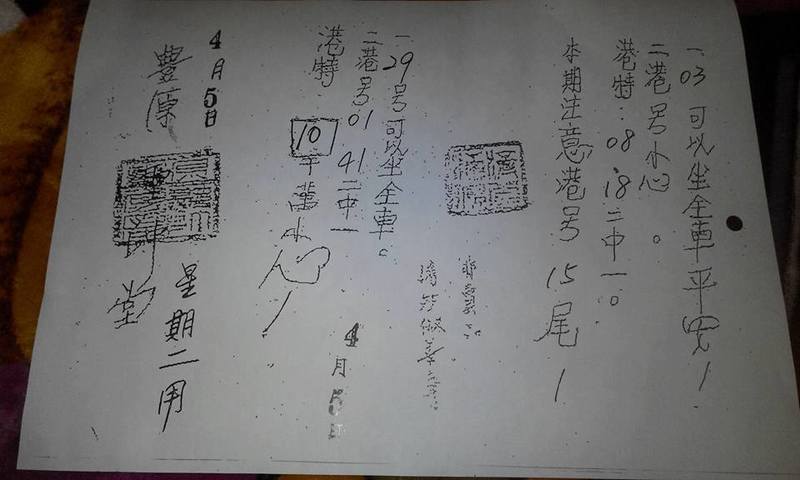 一. 03 可以坐全車平
二港号小心。
港特：08.18二中一。
本期注意港号 15 尾！
一. 29号可以坐全車。
二港号01 41二中一
港特 10 千萬小心！
4月5日
4月5日
豐原 堂
星期二用